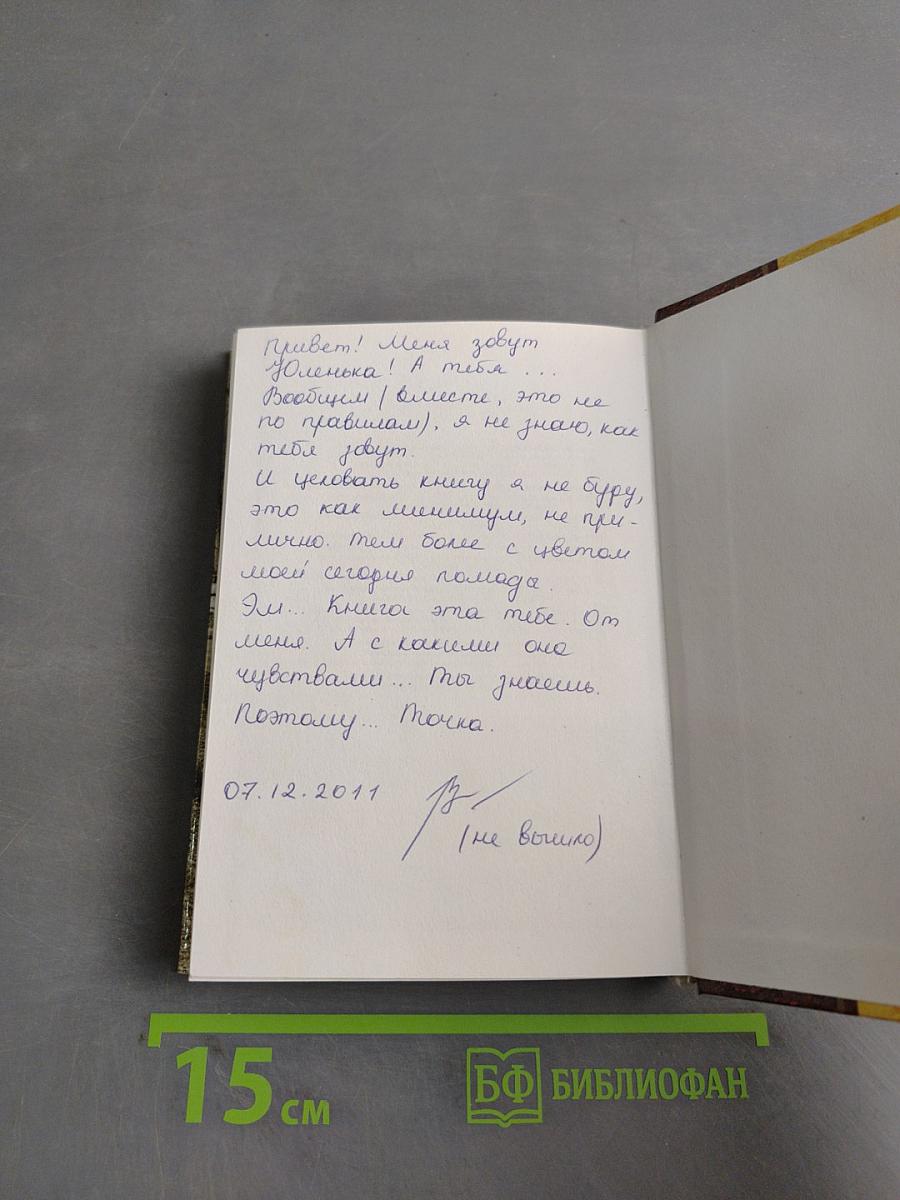 Привет! Меня зовут
Юленька! А тебя ...
Вообщем (вместе, это не
по правилам), я не знаю, как
тебя зовут.
И целовать книгу я не буду,
это как минимум, не при-
лично. Тем более с цветом
моей сегодня помада.
Эм... Книга эта тебе. От
меня. А с какими она
чувствами... Ты знаешь.
Поэтому... Точка.
07.12.2011
(не вышло)
15 см
БФ БИБЛИОФАН